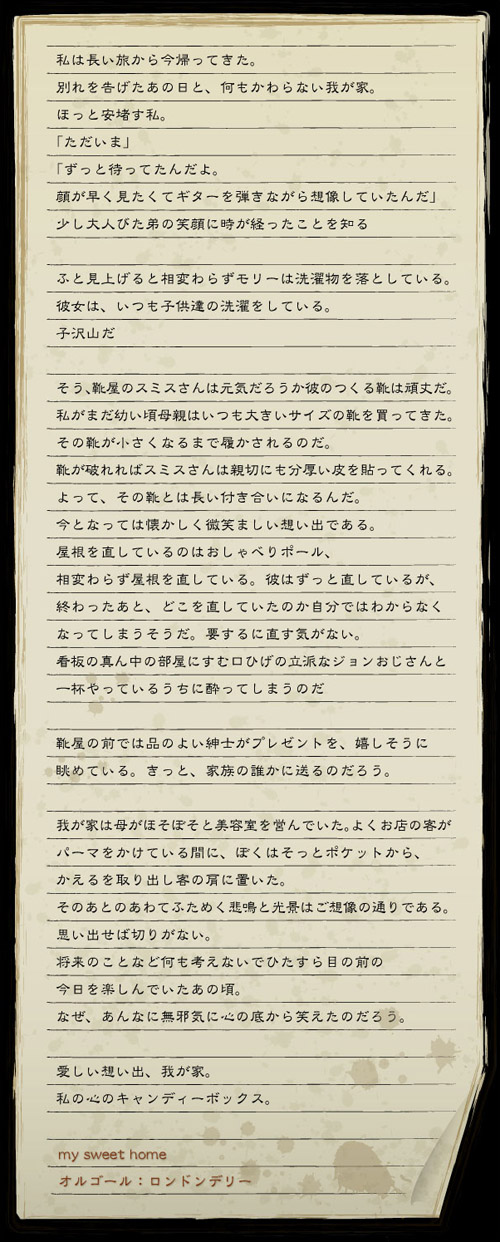 私は長い旅から今帰ってきた。
別れを告げたあの日と、何もかわらない我が家。
ほっと安堵す私。
「ただいま」
「ずっと待ってたんだよ。
顔が早く見たくてギターを弾きながら想像していたんだ」
少し大人びた弟の笑顔に時が経ったことを知る
ふと見上げると相変わらずモリーは洗濯物を落としている。
彼女は、いつも子供達の洗濯をしている。
子沢山だ
そう、靴屋のスミスさんは元気だろうか彼のつくる靴は頑丈だ。
私がまだ幼い頃母親はいつも大きいサイズの靴を買ってきた。
その靴が小さくなるまで履かされるのだ。
靴が破れればスミスさんは親切にも分厚い皮を貼ってくれる。
よって、その靴とは長い付き合いになるんだ。
今となっては懐かしく微笑ましい想い出である。
屋根を直しているのはおしゃべりポール、
相変わらず屋根を直している。彼はずっと直しているが、
終わったあと、どこを直していたのか自分ではわからなく
なってしまうそうだ。要するに直す気がない。
看板の真ん中の部屋にすむ口ひげの立派なジョンおじさんと
一杯やっているうちに酔ってしまうのだ
靴屋の前では品のよい紳士がプレゼントを、嬉しそうに
眺めている。きっと、家族の誰かに送るのだろう。
我が家は母がほそぼそと美容室を営んでいた。よくお店の客が
パーマをかけている間に、ぼくはそっとポケットから、
かえるを取り出し客の肩に置いた。
そのあとのあわてふためく悲鳴と光景はご想像の通りである。
思い出せば切りがない。
将来のことなど何も考えないでひたすら目の前の
今日を楽しんでいたあの頃。
なぜ、あんなに無邪気に心の底から笑えたのだろう。
愛しい想い出、我が家。
私の心のキャンディーボックス。
my sweet home
オルゴール：ロンドンデリー